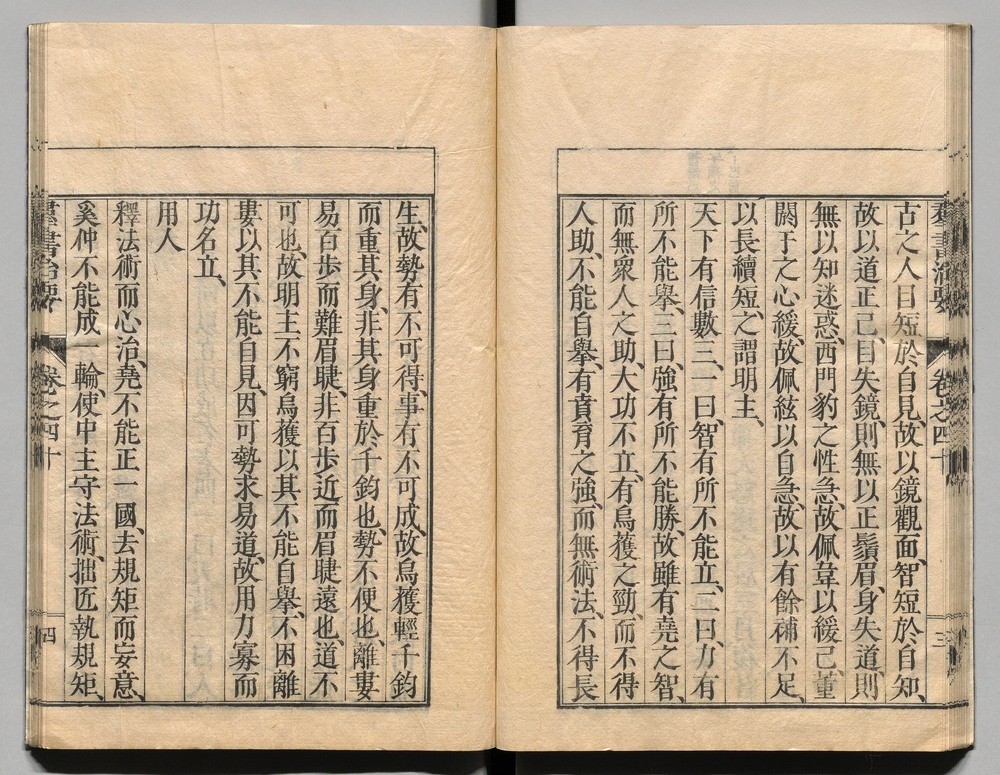 羣書治要 卷之四十 三
古之人目短於自見、故以鏡觀面、智短於自知、
故以道正己、目失鏡、則無以正鬚眉、身失道、則
無以知迷惑、西門豹之性急、故佩韋以緩己、董
閼于之心緩、故佩絃以自急、故以有餘補不足、
以長續短、之謂明主、
天下有信數三、一曰、智有所不能立、二曰、力有
所不能舉、三曰、強有所不能勝、故雖有堯之智、
而無衆人之助、大功不立、有烏獲之勁、而不得
人助、不能自舉、有賁育之強、而無術法、不得長
生、故勢有不可得、事有不可成、故烏獲輕千鈞
而重其身、非其身重於千鈞也、勢不便也、離婁
易百步而難眉睫、非百步近而眉睫遠也、道不
可也、故明主不窮烏獲以其不能自舉、不困離
婁以其不能自見、因可勢求易道、故用力寡而
功名立、
用人
釋法術而心治、堯不能正一國、去規矩而妄意、
奚仲不能成一輪、使中主守法術、拙匠執規矩、
羣書治要 卷之四十 四